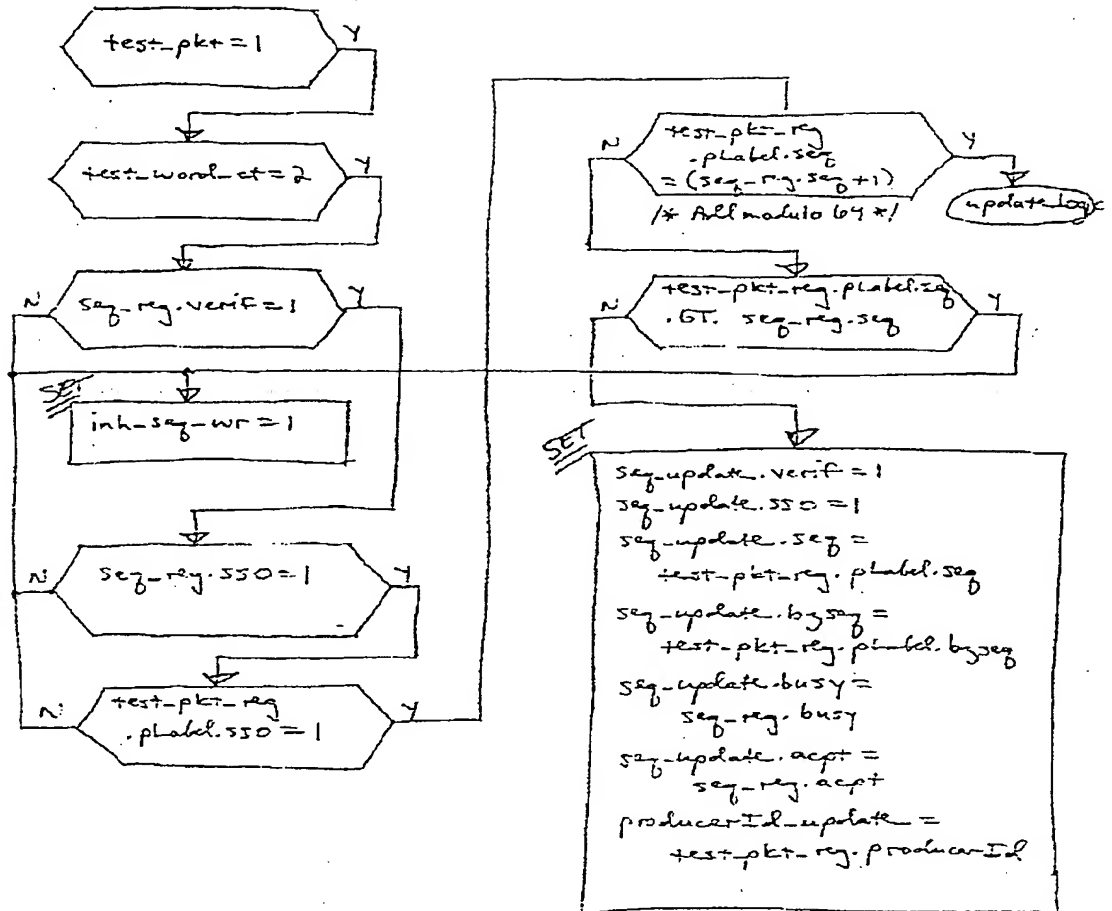 test_pkt = 1
Y
test_word_ct = 2
Y
seq_reg.verif = 1
N
Y
SET
inh_seq_wr = 1
seq_reg.sso = 1
N
Y
test_pkt_reg
.pLabel.sso = 1
N
Y
test_pkt_reg
.pLabel.seq
= (seq_reg.seq + 1)
N
Y
/* All modulo 64 */
update_log
test_pkt_reg.pLabel.seq
.GT. seq_reg.seq
N
Y
SET
seq_update.verif = 1
seq_update.sso = 1
seq_update.seq =
test_pkt_reg.pLabel.seq
seq_update.bzseq =
test_pkt_reg.pLabel.bzseq
seq_update.busy =
seq_reg.busy
seq_update.acpt =
seq_reg.acpt
producerId_update =
test_pkt_reg.producerId